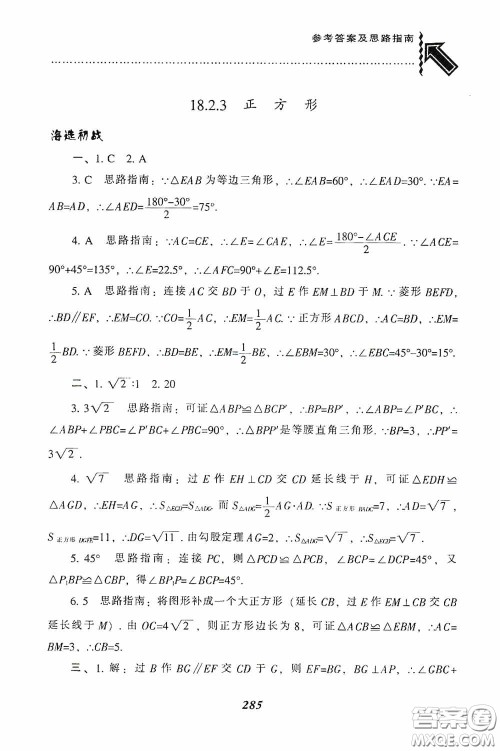 参考答案及思路指南
18.2.3 正 方 形
海选初战
一、1. C 2. A
3. C 思路指南：∵△EAB为等边三角形，∴∠EAB=60°，∴∠EAD=30°. ∵EA=
AB=AD，∴∠AED=\frac{180°-30°}{2}=75°.
4. A 思路指南：∵AC=CE，∴∠E=∠CAE，∴∠E=\frac{180°-∠ACE}{2}. ∵∠ACE=
90°+45°=135°，∴∠E=22.5°，∴∠AFC=90°+∠E=112.5°.
5. A 思路指南：连接AC交BD于O，过E作EM⊥BD于M. ∵菱形BEFD，
∴BD∥EF，∴EM=CO. ∵CO=\frac{1}{2}AC，∴EM=\frac{1}{2}AC. ∵正方形ABCD，∴AC=BD，∴EM=
\frac{1}{2}BD. ∵菱形BEFD，∴BD=BE，∴EM=\frac{1}{2}BE，∴∠EBM=30°，∴∠EBC=45°-30°=15°.
二、1. √2∶1 2. 20
3. 3√2 思路指南：可证△ABP≌△BCP′，∴BP=BP′，∴∠ABP=∠P′BC，∴
∠ABP+∠PBC=∠P′BC+∠PBC=90°，∴△BPP′是等腰直角三角形. ∵BP=3，∴PP′=
3√2.
4. √7 思路指南：过E作EH⊥CD交CD延长线于H，可证△EDH≌
△AGD，∴EH=AG，∴S△ECD=S△ADG. 而S△ADG=\frac{1}{2}AG·AD. ∵S正方形BADC=7，∴AD=√7，
S正方形DGFE=11，∴DG=√11. 由勾股定理AG=2，∴S△ADG=√7，∴S△ECD=√7.
5. 45° 思路指南：连接PC，则△PCD≌△PCB，∠BCP=∠DCP=45°，又
△P₁BP≌△CBP，得∠BP₁P=∠BCP=45°.
6. 5 思路指南：将图形补成一个大正方形（延长CB，过E作EM⊥CB交CB
延长线于M）. 由OC=4√2，则正方形边长为8，可证△ACB≌△EBM，∴AC=
BM=3，∴CB=5.
三、1. 解：过B作BG∥EF交CD于G，则EF=BG，BG⊥AP，∴∠GBC+
285